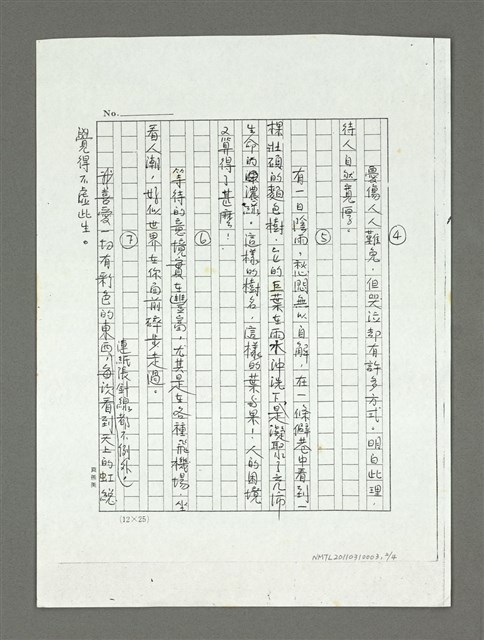 No.
④
憂傷人人難免,但哭泣却有許多方式。明白此理,
待人自然寬厚。
⑤
有一日陰雨,愁悶無以自解,在一條僻巷中看到一
棵壯碩的麵包樹,玄玄的巨葉在雨水沖洗下,是凝聚了元沛
生命的濃綠。這樣的樹名,這樣的葉與果!人的困境
又算得了甚麼!
⑥
等待的意境實在豐富,尤其是在各種飛機場,坐
看人潮,好似世界在你面前碎步走過。
⑦
我喜愛一切有彩色的東西,每次看到天上的虹總
連紙張針線都不例外。
覺得不虛此生。
(12×25)
NMTL20110310003, 2/4